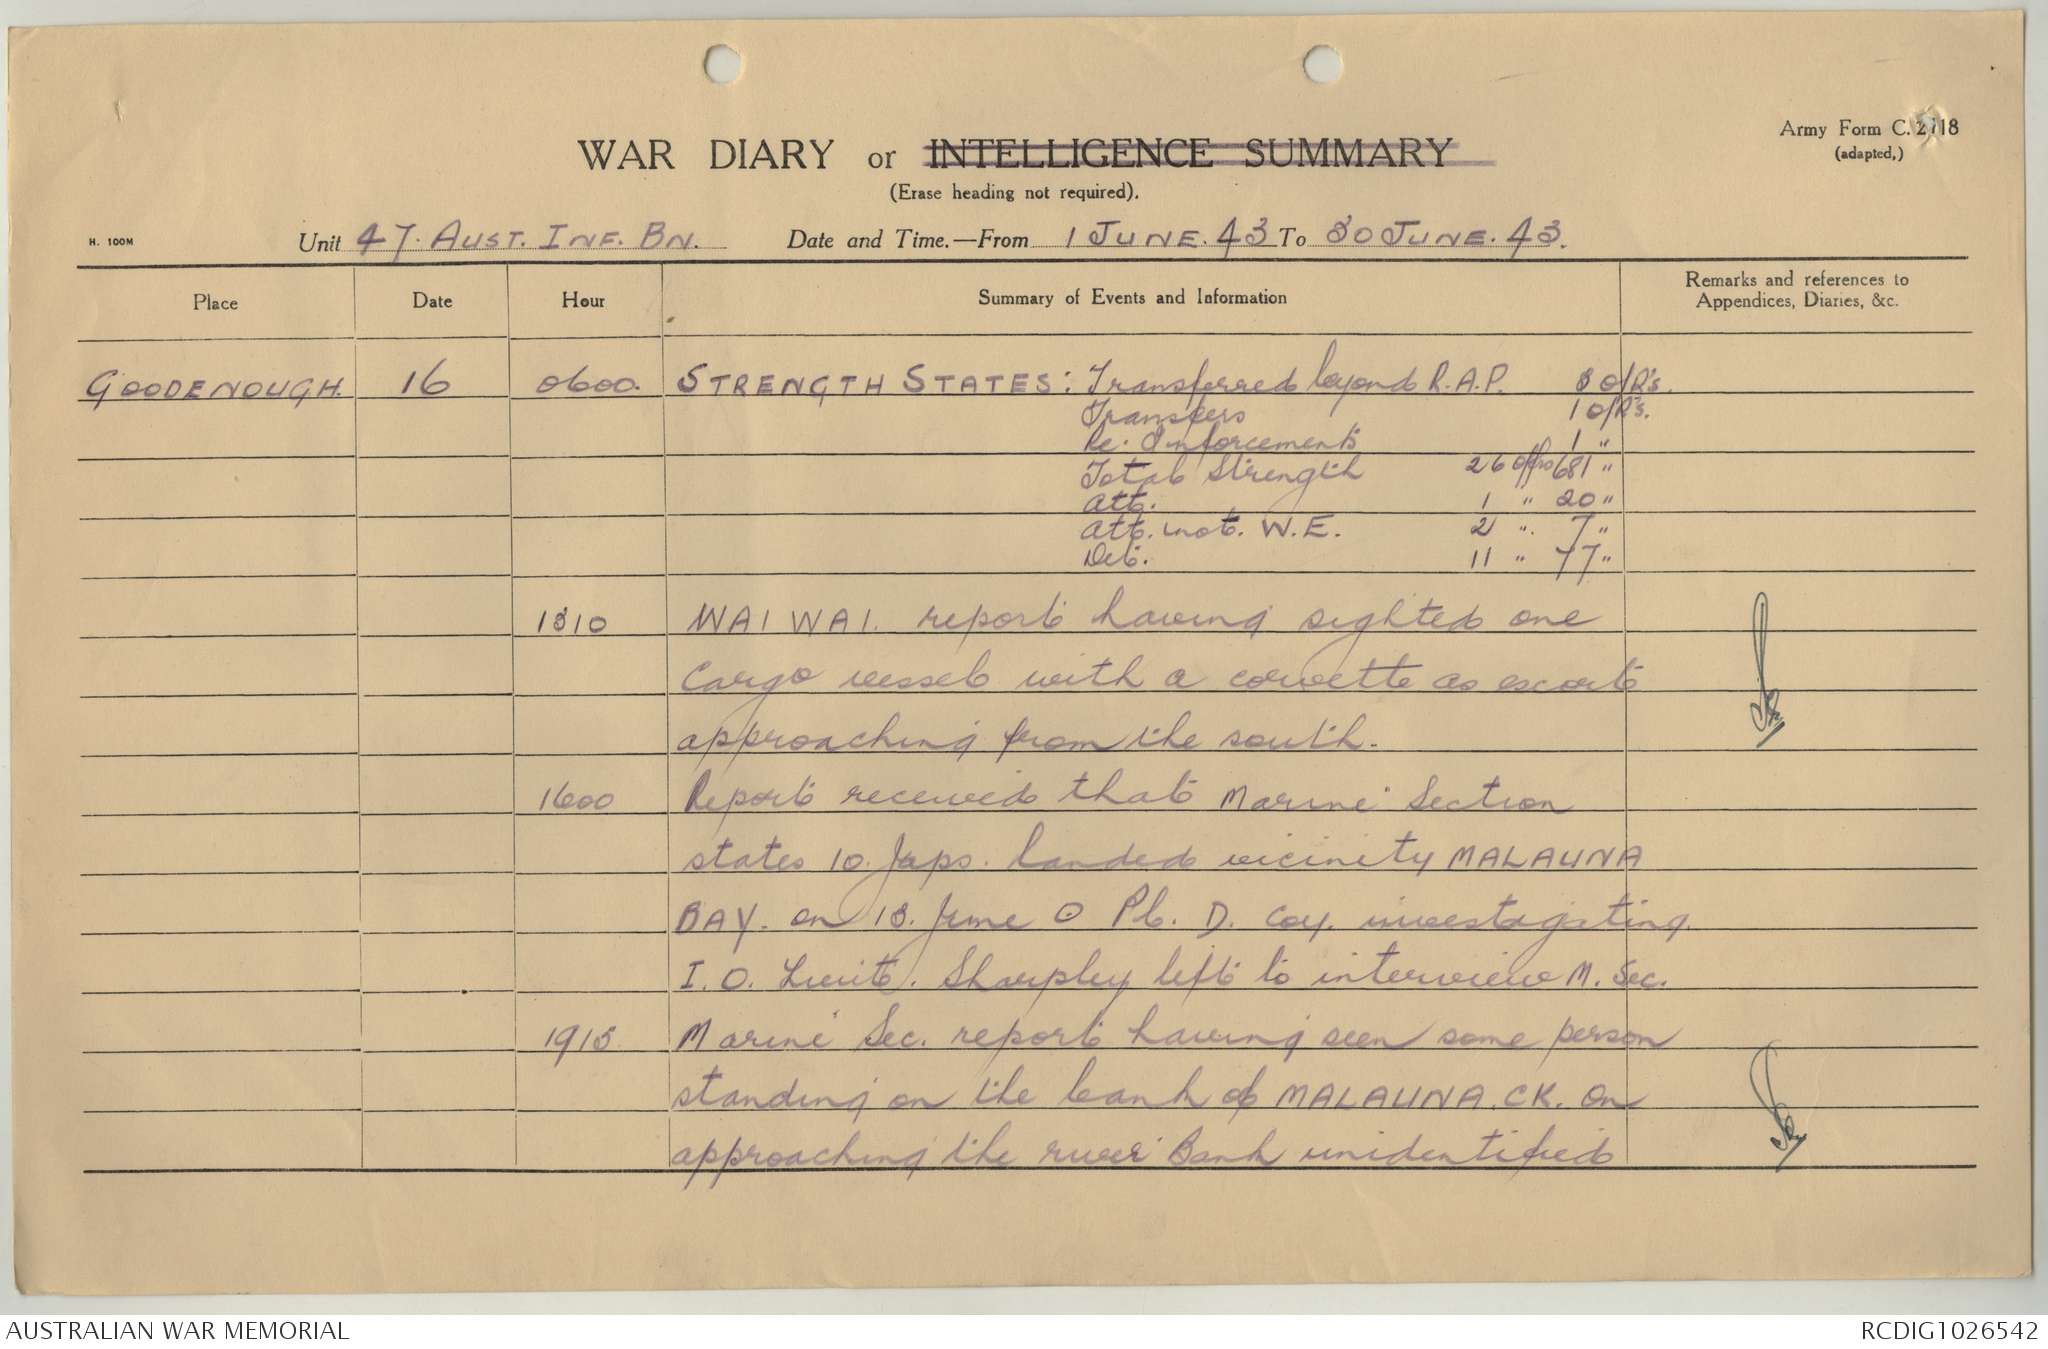 Army Form C. 2118
(adapted,)
WAR DIARY or INTELLIGENCE SUMMARY
(Erase heading not required).
H. 100M
Unit 47. AUST. INF. BN. Date and Time.—From 1 JUNE. 43 To 30 JUNE. 43.
Place Date Hour Summary of Events and Information Remarks and references to Appendices, Diaries, &c.
GOODENOUGH. 16 0600. STRENGTH STATES: Transferred beyond R.A.P. 3 O/R's.
Transfers 1 O/R's.
Re. Inforcements 1 "
Total Strength 26 offrs 681 "
Att. 1 " 20 "
Att. not. W.E. 2 " 7 "
Det. 11 " 77 "
1310 WAI WAI. report having sighted one
Cargo vessel with a corvette as escort
approaching from the south.
1600 Report received that Marine Section
states 10. Japs. landed vicinity MALAUNA
BAY. on 13. June Pl. D. Coy. investagating
I.O. Lieut. Sharpley left to interview M. Sec.
1915 Marine Sec. report having seen some person
standing on the bank of MALAUNA. CK. On
approaching the river Bank unidentified
AUSTRALIAN WAR MEMORIAL
RCDIG1026542